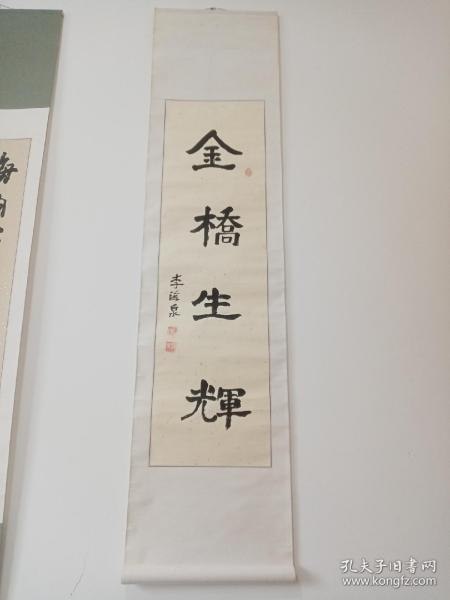 金橋生輝
李海泉
孔夫子旧书网
www.kongfz.com